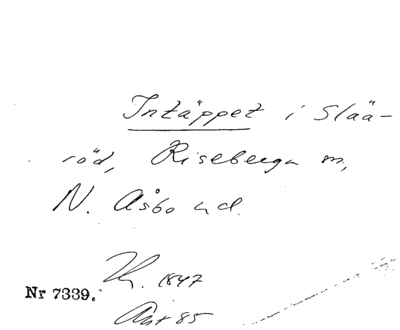 Intäppet i Slää-
röd, Riseberga sn,
N. Åsbo hd.
1847
Nr 7339.
Ant 85